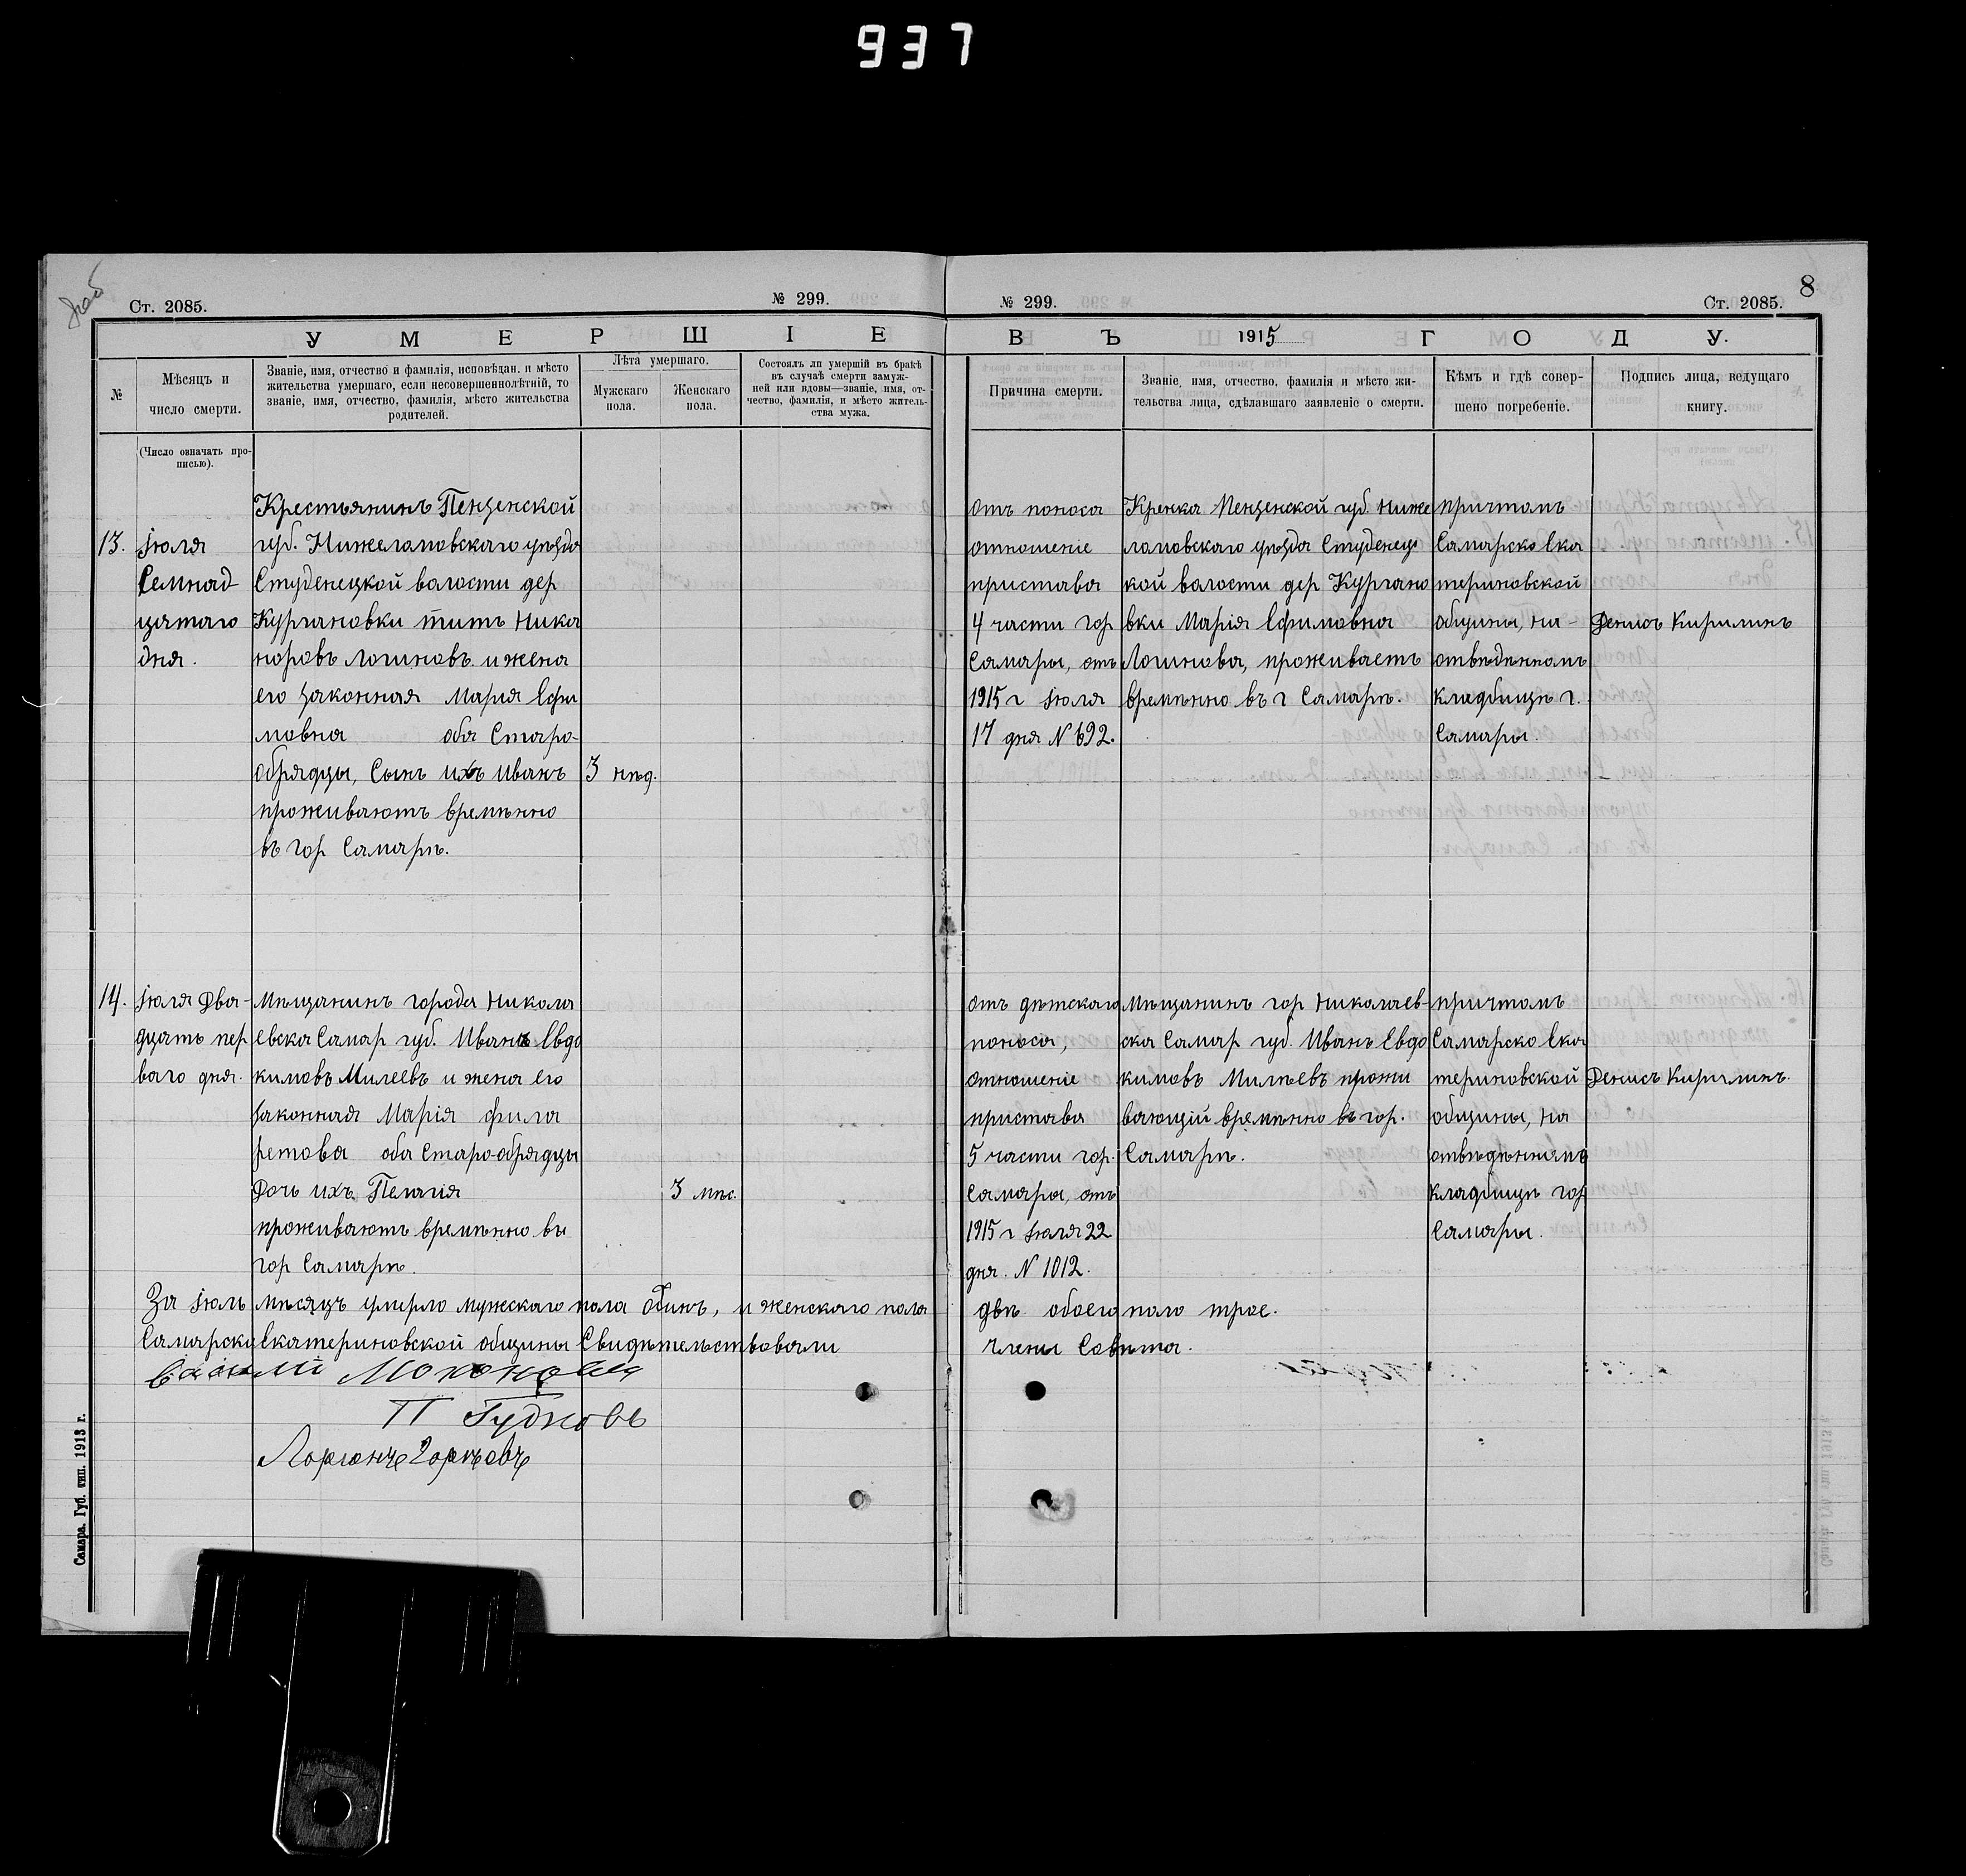 937
8
Ст. 2085.
№ 299.
№ 299.
Ст. 2085.
УМЕРШІЕ
ВЪ 1915 ГОДУ.
№
Мѣсяцъ и
число смерти.
(Число означать про-
писью).
Званіе, имя, отчество и фамилія, исповѣдан. и мѣсто
жительства умершаго, если несовершеннолѣтній, то
званіе, имя, отчество, фамилія, мѣсто жительства
родителей.
Лѣта умершаго.
Мужскаго
пола.
Женскаго
пола.
Состоялъ ли умершій въ бракѣ
въ случаѣ смерти замуж-
ней или вдовы—званіе, имя, от-
чество, фамилія, и мѣсто житель-
ства мужа.
Причина смерти.
Званіе, имя, отчество, фамилія и мѣсто жи-
тельства лица, сдѣлавшаго заявленіе о смерти.
Кѣмъ и гдѣ совер-
шено погребеніе.
Подпись лица, ведущаго
книгу.
13.
Іюля
Семнад
цатаго
дня.
Крестьянинъ Пензенской
губ. Нижеломовскаго уѣзда
Студенецкой валости дер
Кургановки титъ Ника
норовъ Логиновъ и жена
его законная Мария Ефи
мовна оба Старо-
обрядцы, Сынъ ихъ Иванъ
проживаютъ времѣнно
въ гор Самарѣ.
3 нѣд.
отъ поноса
отношеніе
пристава
4 части гор
Самары, отъ
1915 г Іюля
17 дня N 692.
Кренка Пензенской губ. Ниже
ломовскаго уѣзда Студенец
кой валости дер Кургано
вки Марія Ефимовна
Логинова, проживаетъ
времѣнно въ г Самарѣ.
причтомъ
Самарско Ека
териновской
общины, на
отвѣденномъ
кладбищѣ г.
Самары.
Денисъ Кирилинъ
14.
Іюля Два-
дцать пер
ваго дня.
Мѣщанинъ города Никола
евска Самар губ. Иванъ Евдо
кимовъ Милеевъ и жена его
законная Марія фила
ретова оба Старо-обрядцы
Дочь ихъ Пелагія
проживаютъ времѣнно въ
гор Самарѣ.
3 мѣс.
отъ дѣтскаго
поноса,
отношеніе
пристава
5 части гор.
Самары, отъ
1915 г Іюля 22
дня. N 1012.
Мѣщанинъ гор Николаев-
ска Самар губ. Иванъ Евдо
кимовъ Милѣевъ прожи
вающій времѣнно въ гор.
Самарѣ.
причтомъ
Самарско Ека
териновской
общины, на
отвѣдѣнномъ
кладбищѣ гор
Самары.
Денисъ Кирилинъ.
За Іюль мѣсяцъ умерло мужескаго пола одинъ, и женскаго пола двѣ обоего поло трое.
Самарско Екатериновской общины Свидѣтельствовали Члены Совѣта.
П Гудковъ
Самара. Губ. тип. 1913 г.